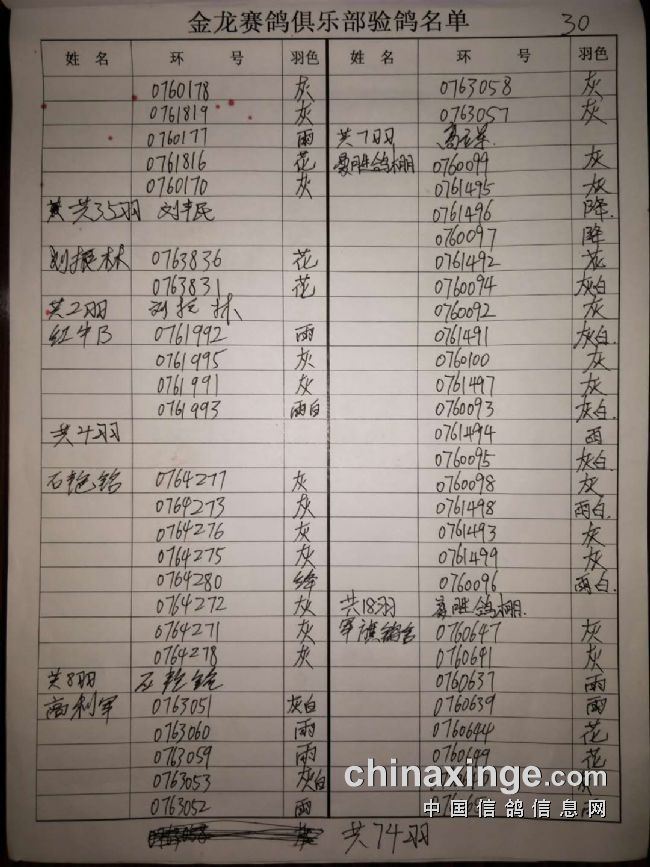 金龙赛鸽俱乐部验鸽名单 30
姓名 环号 羽色
0760178 灰
0761819 灰
0760177 雨
0761816 花
0760170 灰
共35羽
0763836 花
0763831 花
共2羽
红牛B 0761992 雨
0761995 灰
0761991 灰
0761993 雨白
共4羽
0764277 灰
0764273 灰
0764276 灰
0764275 灰
0764280 绛
0764272 灰
0764271 灰
0764278 灰
共8羽
高利军 0763051 灰白
0763060 雨
0763059 雨
0763053 灰白
0763052 雨
姓名 环号 羽色
0763058 灰
0763057 灰
共7羽
豪胜鸽棚 0760099 灰
0761495 灰
0761496 降
0760097 降
0761492 花
0760094 灰白
0760092 灰
0761491 灰白
0760100 灰
0761497 灰
0760093 灰白
0761494 雨
0760095 灰白
0760098 灰
0761498 雨白
0761493 灰
0761499 灰
0760096 雨白
共18羽 豪胜鸽棚
0760647 灰
0760691 灰
0760637 雨
0760639 雨
0760644 花
0760649 花
共74羽
chinaxinge.com
中国信鸽信息网